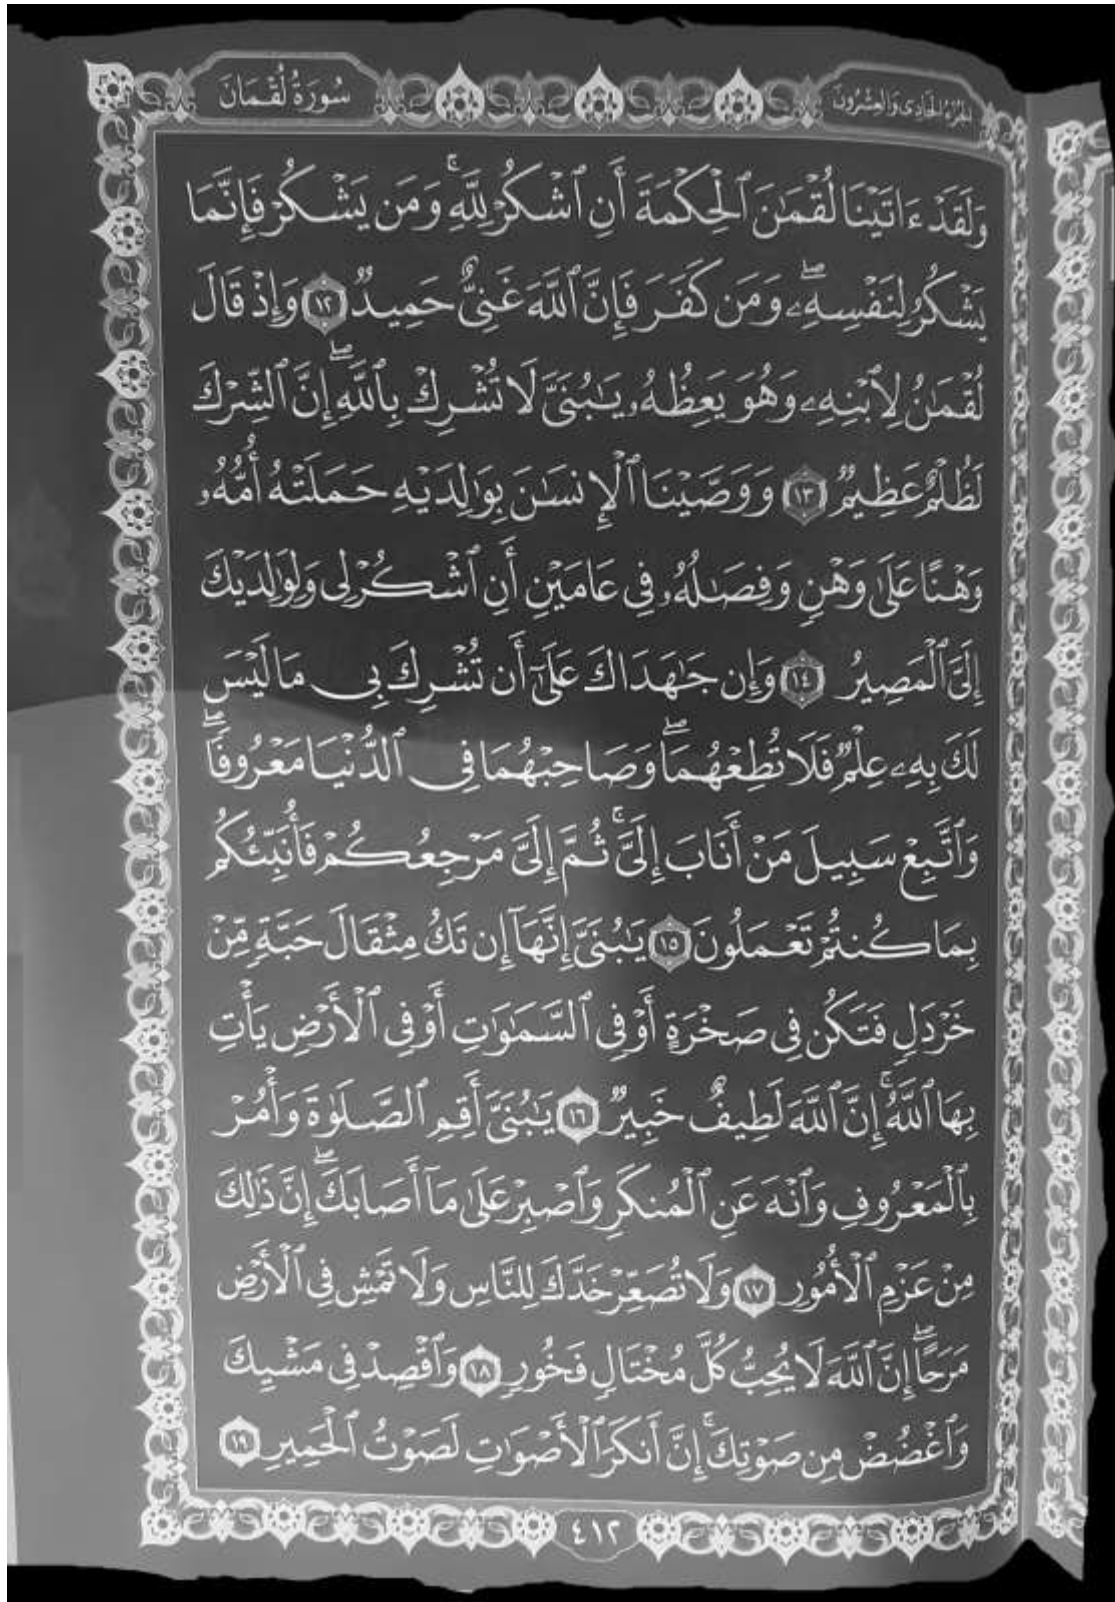 الجزء الحادي والعشرون
سُورَةُ لُقْمَانَ
وَلَقَدْ ءَاتَيْنَا لُقْمَٰنَ ٱلْحِكْمَةَ أَنِ ٱشْكُرْ لِلَّهِۚ وَمَن يَشْكُرْ فَإِنَّمَا
يَشْكُرُ لِنَفْسِهِۦۖ وَمَن كَفَرَ فَإِنَّ ٱللَّهَ غَنِىٌّ حَمِيدٌ ١٢ وَإِذْ قَالَ
لُقْمَٰنُ لِٱبْنِهِۦ وَهُوَ يَعِظُهُۥ يَٰبُنَىَّ لَا تُشْرِكْ بِٱللَّهِۖ إِنَّ ٱلشِّرْكَ
لَظُلْمٌ عَظِيمٌ ١٣ وَوَصَّيْنَا ٱلْإِنسَٰنَ بِوَٰلِدَيْهِ حَمَلَتْهُ أُمُّهُۥ
وَهْنًا عَلَىٰ وَهْنٍ وَفِصَٰلُهُۥ فِى عَامَيْنِ أَنِ ٱشْكُرْ لِى وَلِوَٰلِدَيْكَ
إِلَىَّ ٱلْمَصِيرُ ١٤ وَإِن جَٰهَدَاكَ عَلَىٰٓ أَن تُشْرِكَ بِى مَا لَيْسَ
لَكَ بِهِۦ عِلْمٌ فَلَا تُطِعْهُمَاۖ وَصَاحِبْهُمَا فِى ٱلدُّنْيَا مَعْرُوفًاۖ
وَٱتَّبِعْ سَبِيلَ مَنْ أَنَابَ إِلَىَّۚ ثُمَّ إِلَىَّ مَرْجِعُكُمْ فَأُنَبِّئُكُم
بِمَا كُنتُمْ تَعْمَلُونَ ١٥ يَٰبُنَىَّ إِنَّهَآ إِن تَكُ مِثْقَالَ حَبَّةٍ مِّنْ
خَرْدَلٍ فَتَكُن فِى صَخْرَةٍ أَوْ فِى ٱلسَّمَٰوَٰتِ أَوْ فِى ٱلْأَرْضِ يَأْتِ
بِهَا ٱللَّهُۚ إِنَّ ٱللَّهَ لَطِيفٌ خَبِيرٌ ١٦ يَٰبُنَىَّ أَقِمِ ٱلصَّلَوٰةَ وَأْمُرْ
بِٱلْمَعْرُوفِ وَٱنْهَ عَنِ ٱلْمُنكَرِ وَٱصْبِرْ عَلَىٰ مَآ أَصَابَكَۖ إِنَّ ذَٰلِكَ
مِنْ عَزْمِ ٱلْأُمُورِ ١٧ وَلَا تُصَعِّرْ خَدَّكَ لِلنَّاسِ وَلَا تَمْشِ فِى ٱلْأَرْضِ
مَرَحًاۖ إِنَّ ٱللَّهَ لَا يُحِبُّ كُلَّ مُخْتَالٍ فَخُورٍ ١٨ وَٱقْصِدْ فِى مَشْيِكَ
وَٱغْضُضْ مِن صَوْتِكَۚ إِنَّ أَنكَرَ ٱلْأَصْوَٰتِ لَصَوْتُ ٱلْحَمِيرِ ١٩
٤١٢